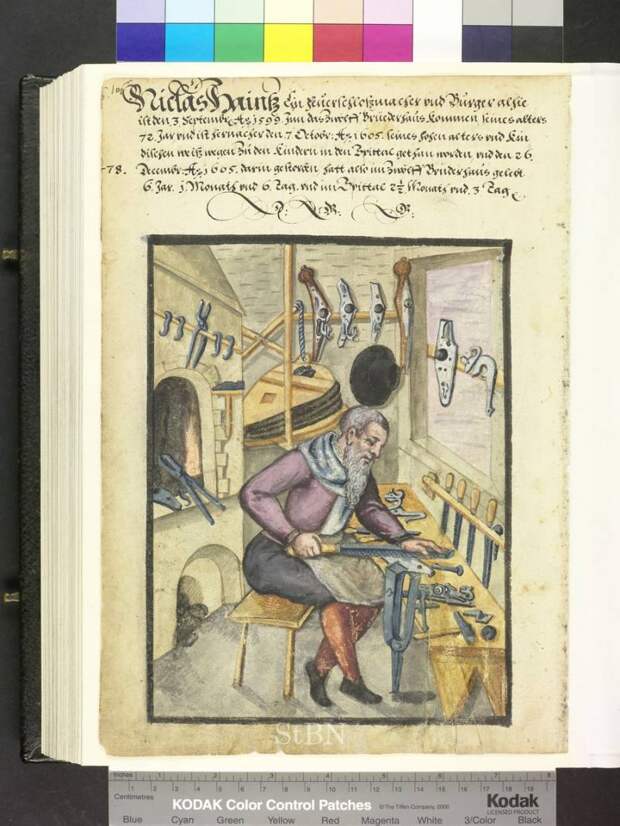 Niclas Haintz Ein feuerschloßmacher vnd Burger alhie
ist den 3 Septembr. Aº 1599 Jnn das Zwelff Brüederhaus kommen seines alters
72 Jar vnd ist hernacher den 7 Octobr: Aº 1605 seines hohen alters vnd kin
dischen weiß wegen Zu den kindern in den Spittal gethan worden, vnd den 26.
78. Decembr. Aº 1605. darin gestorben hatt also im Zwelff Bruderhaus gelebt
6. Jar. 1 Monath vnd 6. Tag. vnd im Spittal 2½ Monath vnd 3 Tag
StBN
Inches 1 2 3 4 5 6 7 8
Centimetres 1 2 3 4 5 6 7 8 9 10 11 12 13 14 15 16 17 18 19
KODAK Color Control Patches ©The Tiffen Company, 2000 Kodak
LICENSED PRODUCT
Blue Cyan Green Yellow Red Magenta White 3/Color Black